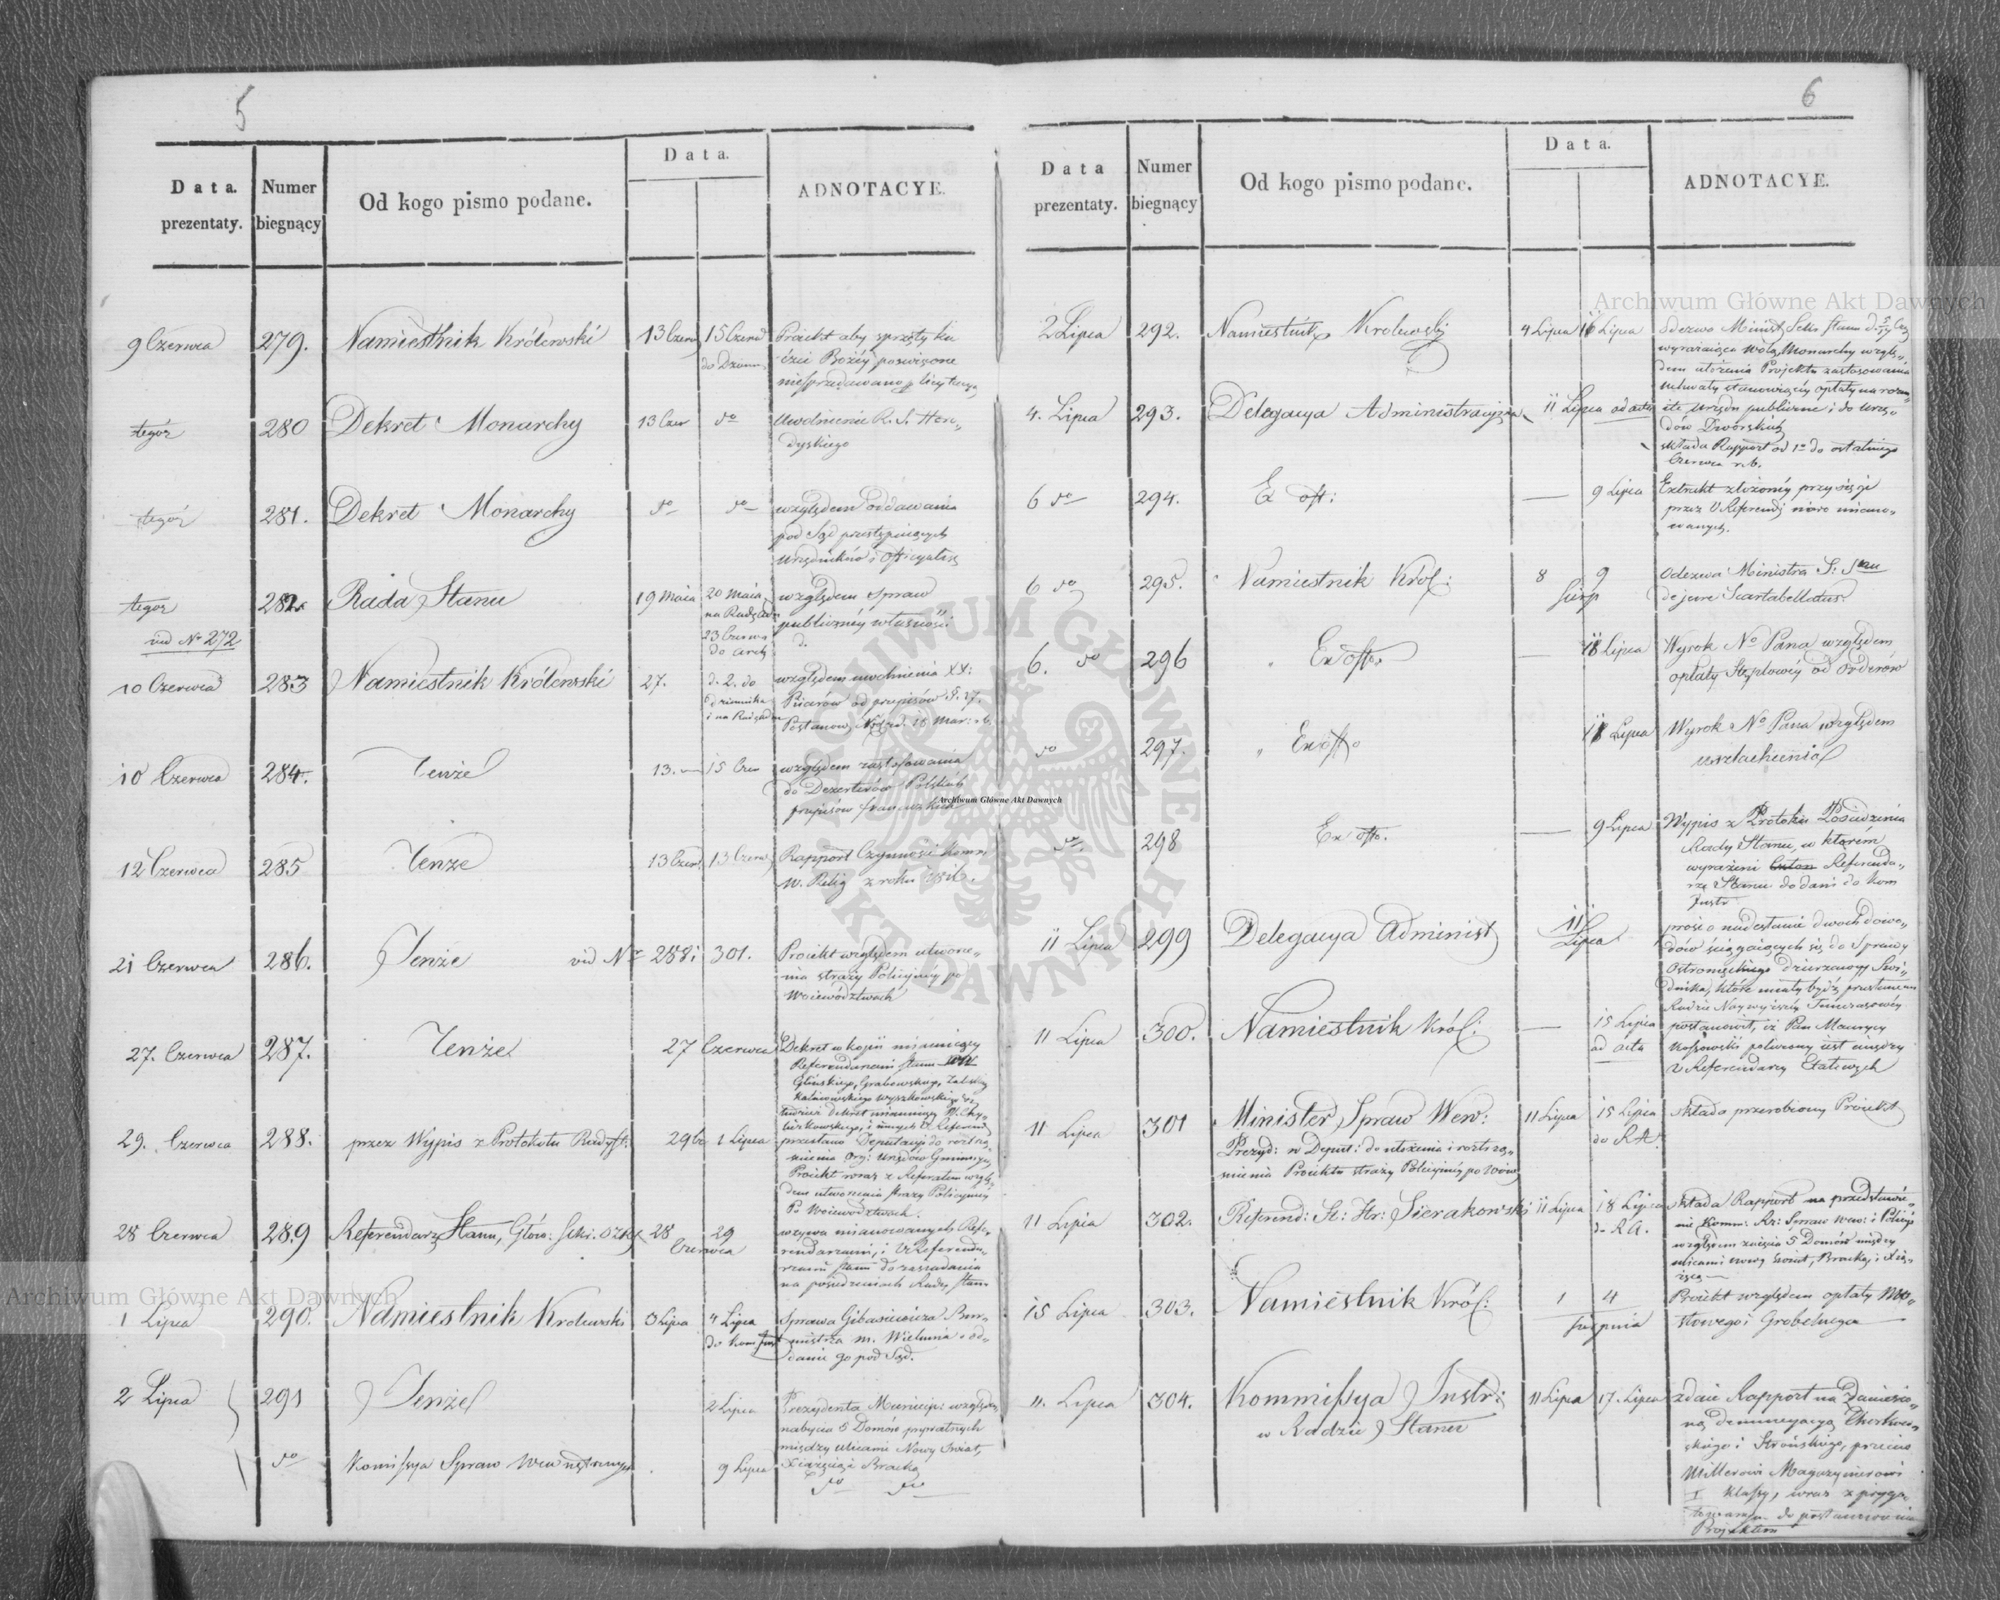 5
Data.
prezentaty.
Numer
biegnący
Od kogo pismo podane.
Data.
ADNOTACYE.
9 Czerwca 279. Namiestnik Królewski 13 Czerw 15 Czerwc
do Dzienn.
Proiekt aby sprzęty ku
czci Bożéy poswięcone
niesprzedawano
tegoż 280 Dekret Monarchy 13 Czer do
Uwolnienie R. S.
dyskiego
tegoż 281. Dekret Monarchy do do
względem oddawania
pod Sąd przestępuiących
Urzędników i Officyalist
tegoż 282. Rada Stanu 19 Maia 20 Maia
vid No 272
względem Spraw
publicznéy własności
10 Czerwca 283 Namiestnik Królewski 27. d. 2. do
dziennika
i na Radę
względem uwolnienia XX:
Piiarów od przepisów §. 27.
Postanow. 18 Mar:
10 Czerwca 284. Tenże 13. 15 Czer
względem zastosowania
do Dezerterów Polskich
przepisów francuzkich
12 Czerwca 285 Tenże 13 Czer. 13 Czerw
Rapport Czynności Kom:
W. Relig z roku
21 Czerwca 286. Tenże vid No 288: 301.
Proiekt względem utworze-
nia straży Policyjnéy po
Woiewództwach
27. Czerwca 287. Tenże 27 Czerwca
Dekret w kopii mianuiący
Referendarzami Stanu
Glińskiego, Grabowskiego,
29. Czerwca 288. przez Wypis z Protokołu Rady St: 29 1 Lipca
przesłano Deputacyi do roztrzą-
śnienia Org: Urzędów Gminnych
Proiekt wraz z Referatem wzglę-
dem utworzenia straży Policyjnéy
Po Woiewództwach.
28 Czerwca 289 Referendarz Stanu, 28 29
Czerwca
wzywa mianowanych Refe-
rendarzami, i V Referenda-
rzami Stanu do zasiadania
na posiedzeniach Rady Stanu
1 Lipca 290. Namiestnik Królewski 3 Lipca 4 Lipca
Sprawa Gibasiewicza Bur-
mistrza m. Wielunia o od-
danie go pod Sąd.
2 Lipca 291 Tenże 2 Lipca
Prezydenta Municip: względem
nabycia 5 Domów prywatnych
między ulicami Nowy Swiat,
Xiążęcą i Bracką
do Komissya Spraw Wewnętrznych 9 Lipca
do do
6
Data
prezentaty.
Numer
biegnący
Od kogo pismo podane.
Data.
ADNOTACYE.
2 Lipca 292. Namiestnik Królewski 4 Lipca 16 Lipca
Odezwa Minist. Sekr. Stanu
wyrażaiąca wolą Monarchy wzglę-
dem ułożenia Projektu zastosowania
uchwały stanowiącéy opłaty na rozma-
ite urzęda publiczne i do Urzę-
dów Dworskich
4. Lipca 293. Delegacya Administracyjna 11 Lipca ad acta
składa Rapport od 1o do ostatniego
Czerwca r. b.
6 do 294. Ex off: — 9 Lipca
Extrakt złożonéy przysięgi
przez V Referend: nowo miano-
wanych.
6 do 295. Namiestnik Król: 8 9
Sierp
Odezwa Ministra S: Stanu
de jure Scartabellatus.
6. do 296 Ex offo — 18 Lipca
Wyrok No Pana względem
opłaty Stęplowéy od orderów
do 297. Ex offo 18 Lipca
Wyrok No Pana względem
uszlachcenia
do 298 Ex offo. — 9 Lipca
Wypis z Protokułu Posiedzenia
Rady Stanu, w którém
wyrażeni Referenda-
rze Stanu dodani do Kom
Instr
11 Lipca 299 Delegacya Administ 11
Lipca
prosi o nadesłanie dwóch dowo-
dów ściągaiących się do Sprawy
Ostromęckiego dzierżawcy Swi-
dnika, które miały bydź przesłane
Radzie Naywyższéy Tymczasowéy
11 Lipca 300. Namiestnik Król: — 15 Lipca
ad acta
postanowił, iż Pan Maurycy
Kossowski policzony iest między
V Referendarzy Etatowych
11 Lipca 301 Minister Spraw Wew: 11 Lipca 15 Lipca
do RA
Prezyd: w Deput: do ułożenia i roztrzą-
śnienia Proiektu straży Policyjnéy po Woiew
składa przerobiony Proiekt
11 Lipca 302. Referend: St: Hr: Sierakowski 11 Lipca 18 Lipca
d. RA.
składa Rapport na przedstawie-
nie Komm: Rz: Spraw Wew: i Policyi
względem zaięcia 5 Domów między
ulicami nowy świat, Bracką, i Xią-
żęcą
15 Lipca 303. Namiestnik Król: 1 4
Sierpnia
Proiekt względem opłaty Mo-
stowego i Grobelnego
11. Lipca 304. Kommissya Instr: 11 Lipca 17. Lipca
w Radzie Stanu
zdaie Rapport na zaniesio-
ną denuncyacyą
skiego i Strońskiego, przeciw
Millerowi Magazynierowi
I klassy, wraz z przygo-
towanym do postanowienia
Projektem
Archiwum Główne Akt Dawnych
Archiwum Główne Akt Dawnych
Archiwum Główne Akt Dawnych
ARCHIWUM GŁÓWNE AKT DAWNYCH